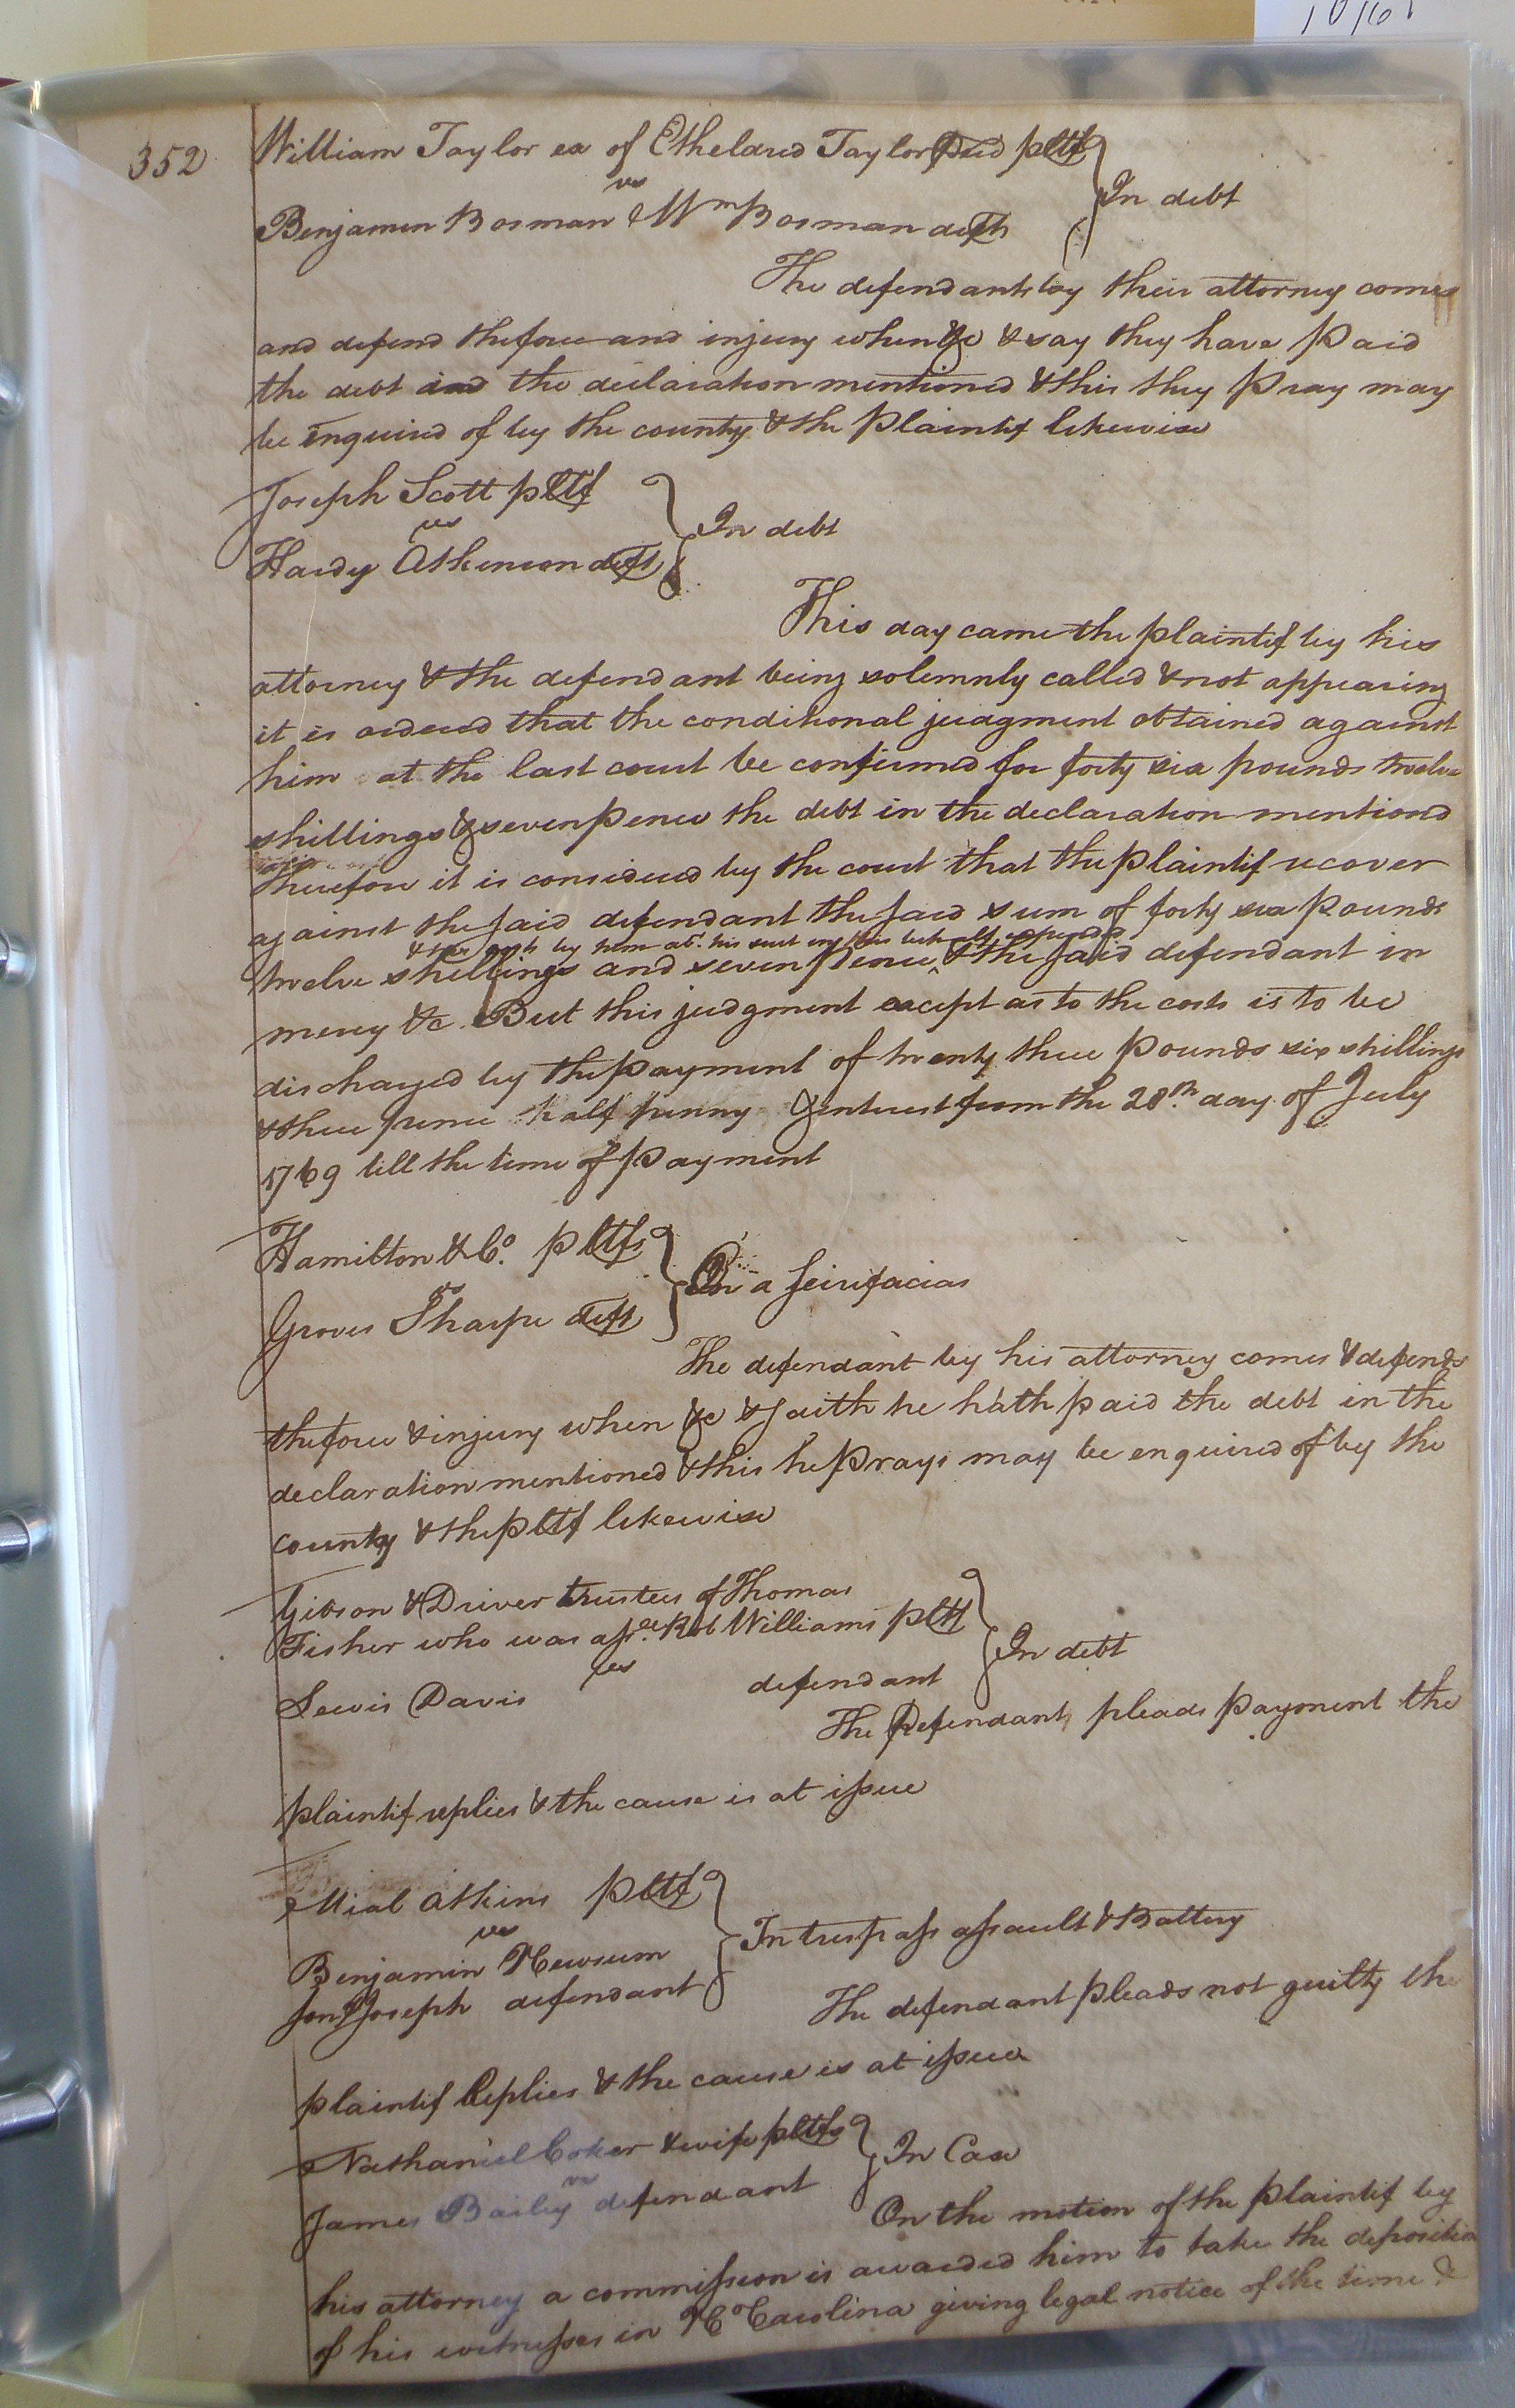 352
William Taylor ex of Etheldred Taylor Decd pltf
vs
In debt
Benjamin Bosman & Wm Bosman defts
The defendants by their attorney comes
and defend the force and injury when &c & say they have paid
the debt and the declaration mentioned & this they pray may
be enquired of by the county & the plaintif likewise
Joseph Scott pltf
vs
In debt
Hardy Atkinson deft
This day came the plaintif by his
attorney & the defendant being solemnly called & not appearing
it is ordered that the conditional judgment obtained against
him at the last court be confirmed for forty six pounds twelve
shillings & seven pence the debt in the declaration mentiond
therefore it is considered by the court that the plaintif recover
against the said defendant the said sum of forty six pounds
& the costs by him abt. his suit in this behalf expended
twelve shillings and seven pence ‸ & the said defendant in
mercy &c But this judgment except as to the costs is to be
discharged by the payment of twenty three pounds six shillings
& three pence half penny & interest from the 28th day of July
1769 till the time of payment
Hamilton & Co. pltfs
vs
On a scirefacias
Groves Tharpe deft
The defendant by his attorney comes & defends
the force & injury when &c & saith he hath paid the debt in the
declaration mentioned & this he prays may be enquired of by the
county & the pltf likewise
Gibson & Driver trustees of Thomas
Fisher who was asse. Rob Williams pltf
vs
In debt
Lewis Davis defendant
The Defendant pleads payment the
plaintif replies & the cause is at issue
Mial Atkins pltf
vs
In trespass assault & Battery
Benjamin Newsum
son Joseph defendant
The defendant pleads not guilty the
plaintif Replies & the cause is at issue
Nathaniel Coker & wife pltfs
vs
In Case
James Bailey defendant
On the motion of the plaintif by
his attorney a commission is awarded him to take the deposition
of his witnesses in No Carolina giving legal notice of the time &